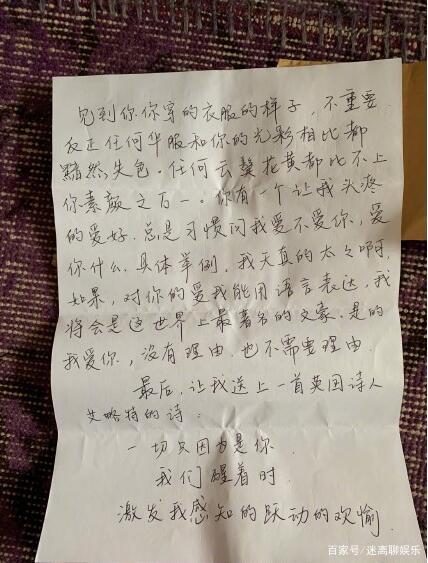 见到你你穿的衣服的样子，不重要
反正任何华服和你的光彩相比都
黯然失色。任何云鬓花黄都比不上
你素颜之百一。你有一个让我头疼
的爱好，总是习惯问我爱不爱你，爱
你什么，具体举例，我天真的太太啊，
如果，对你的爱我能用语言表达，我
将会是这世界上最著名的文豪，是的
我爱你，没有理由，也不需要理由。
最后，让我送上一首英国诗人
艾略特的诗：
一切只因为是你
我们醒着时
激发我感知的跃动的欢愉.
百家号/迷离聊娱乐